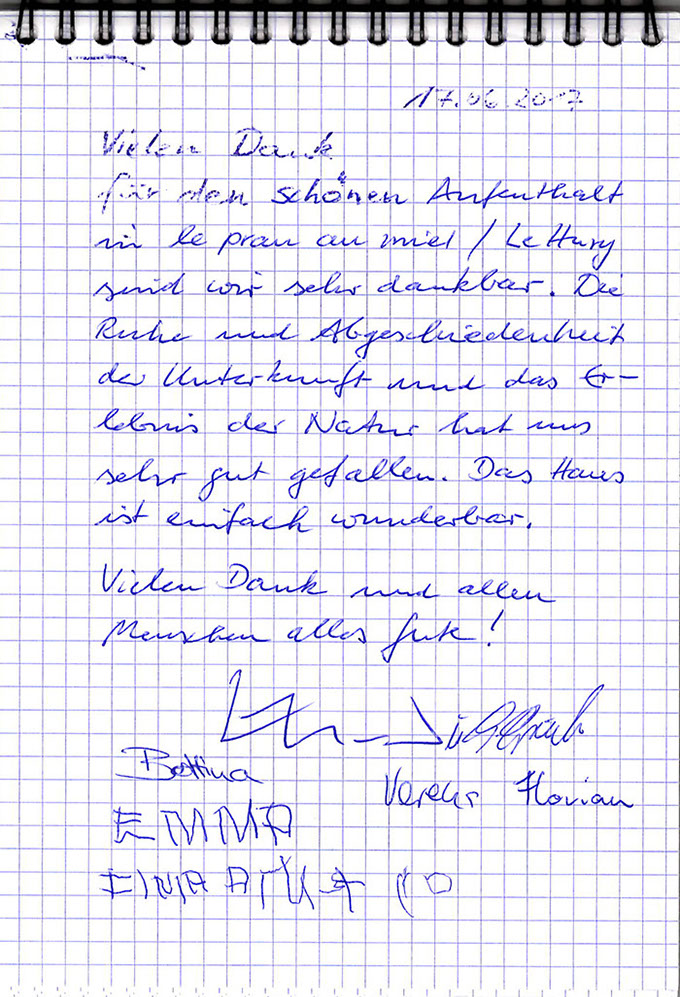 17.06.2017
Vielen Dank
für den schönen Aufenthalt
in le prau au miel / Le Hury
sind wir sehr dankbar. Die
Ruhe und Abgeschiedenheit
der Unterkunft und das Er-
lebnis der Natur hat uns
sehr gut gefallen. Das Haus
ist einfach wunderbar.
Vielen Dank und allen
Menschen alles Gute!
Bettina
Florian
EMMA